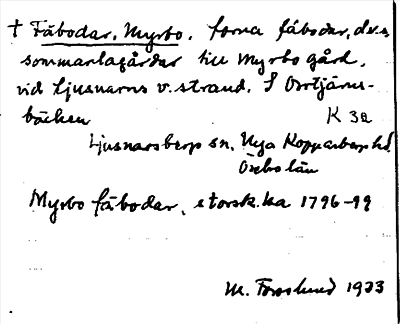 † Fäbodar, Myrbo, forna fäbodar, d.v.s.
sommarlagårdar till Myrbo gård,
vid Ljusnarns v. strand, S Orrtjärns-
bäcken K 3a
Ljusnarsbergs sn, Nya Kopparbergs hd
Örebro län
Myrbo fäbodar, storsk.ka 1796-99
M. Forslund 1933